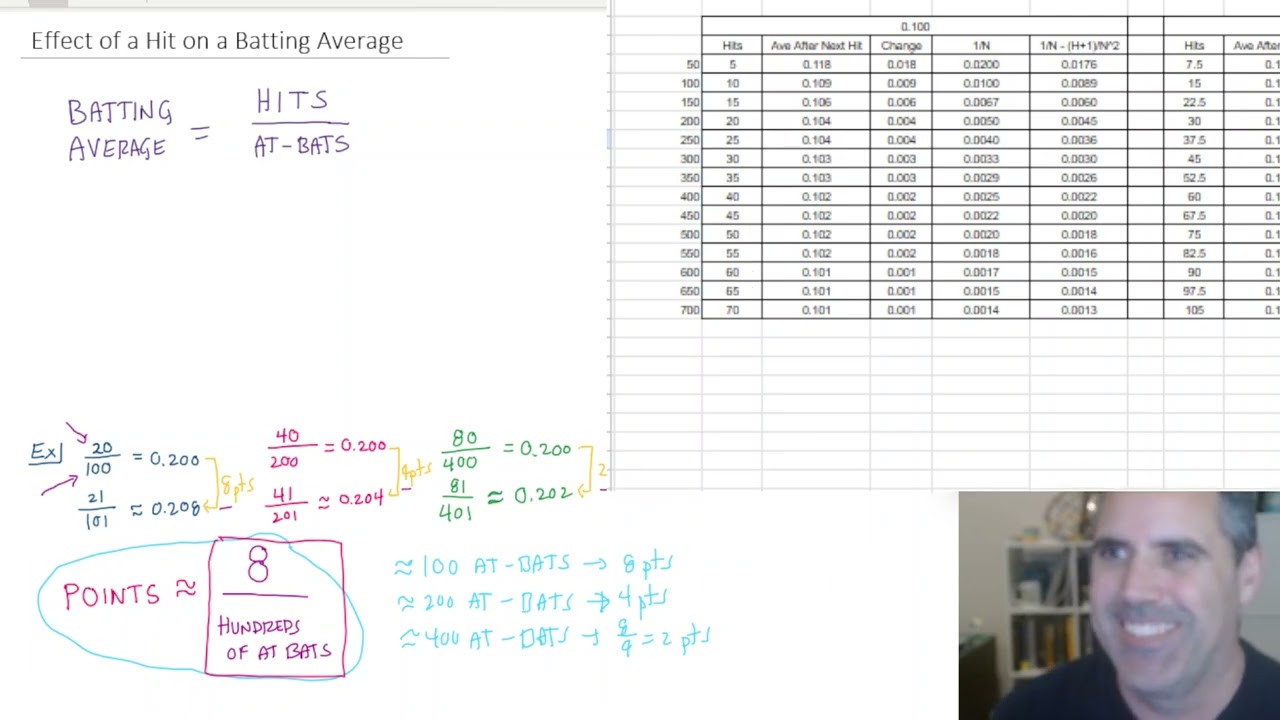 Effect of a Hit on a Batting Average
BATTING AVERAGE = HITS / AT-BATS
0.100
Hits Ave After Next Hit Change 1/N 1/N - (H+1)/N^2 Hits Ave After
50 5 0.118 0.018 0.0200 0.0176 7.5 0.1
100 10 0.109 0.009 0.0100 0.0089 15 0.1
150 15 0.106 0.006 0.0067 0.0060 22.5 0.1
200 20 0.104 0.004 0.0050 0.0045 30 0.1
250 25 0.104 0.004 0.0040 0.0036 37.5 0.1
300 30 0.103 0.003 0.0033 0.0030 45 0.1
350 35 0.103 0.003 0.0029 0.0026 52.5 0.1
400 40 0.102 0.002 0.0025 0.0022 60 0.1
450 45 0.102 0.002 0.0022 0.0020 67.5 0.1
500 50 0.102 0.002 0.0020 0.0018 75 0.1
550 55 0.102 0.002 0.0018 0.0016 82.5 0.1
600 60 0.101 0.001 0.0017 0.0015 90 0.1
650 65 0.101 0.001 0.0015 0.0014 97.5 0.1
700 70 0.101 0.001 0.0014 0.0013 105 0.1
Ex) 20/100 = 0.200
21/101 ≈ 0.208
8 pts
40/200 = 0.200
41/201 ≈ 0.204
4 pts
80/400 = 0.200
81/401 ≈ 0.202
2
POINTS ≈ 8 / HUNDREDS OF AT BATS
≈ 100 AT-BATS → 8 pts
≈ 200 AT-BATS → 4 pts
≈ 400 AT-BATS → 8/4 = 2 pts